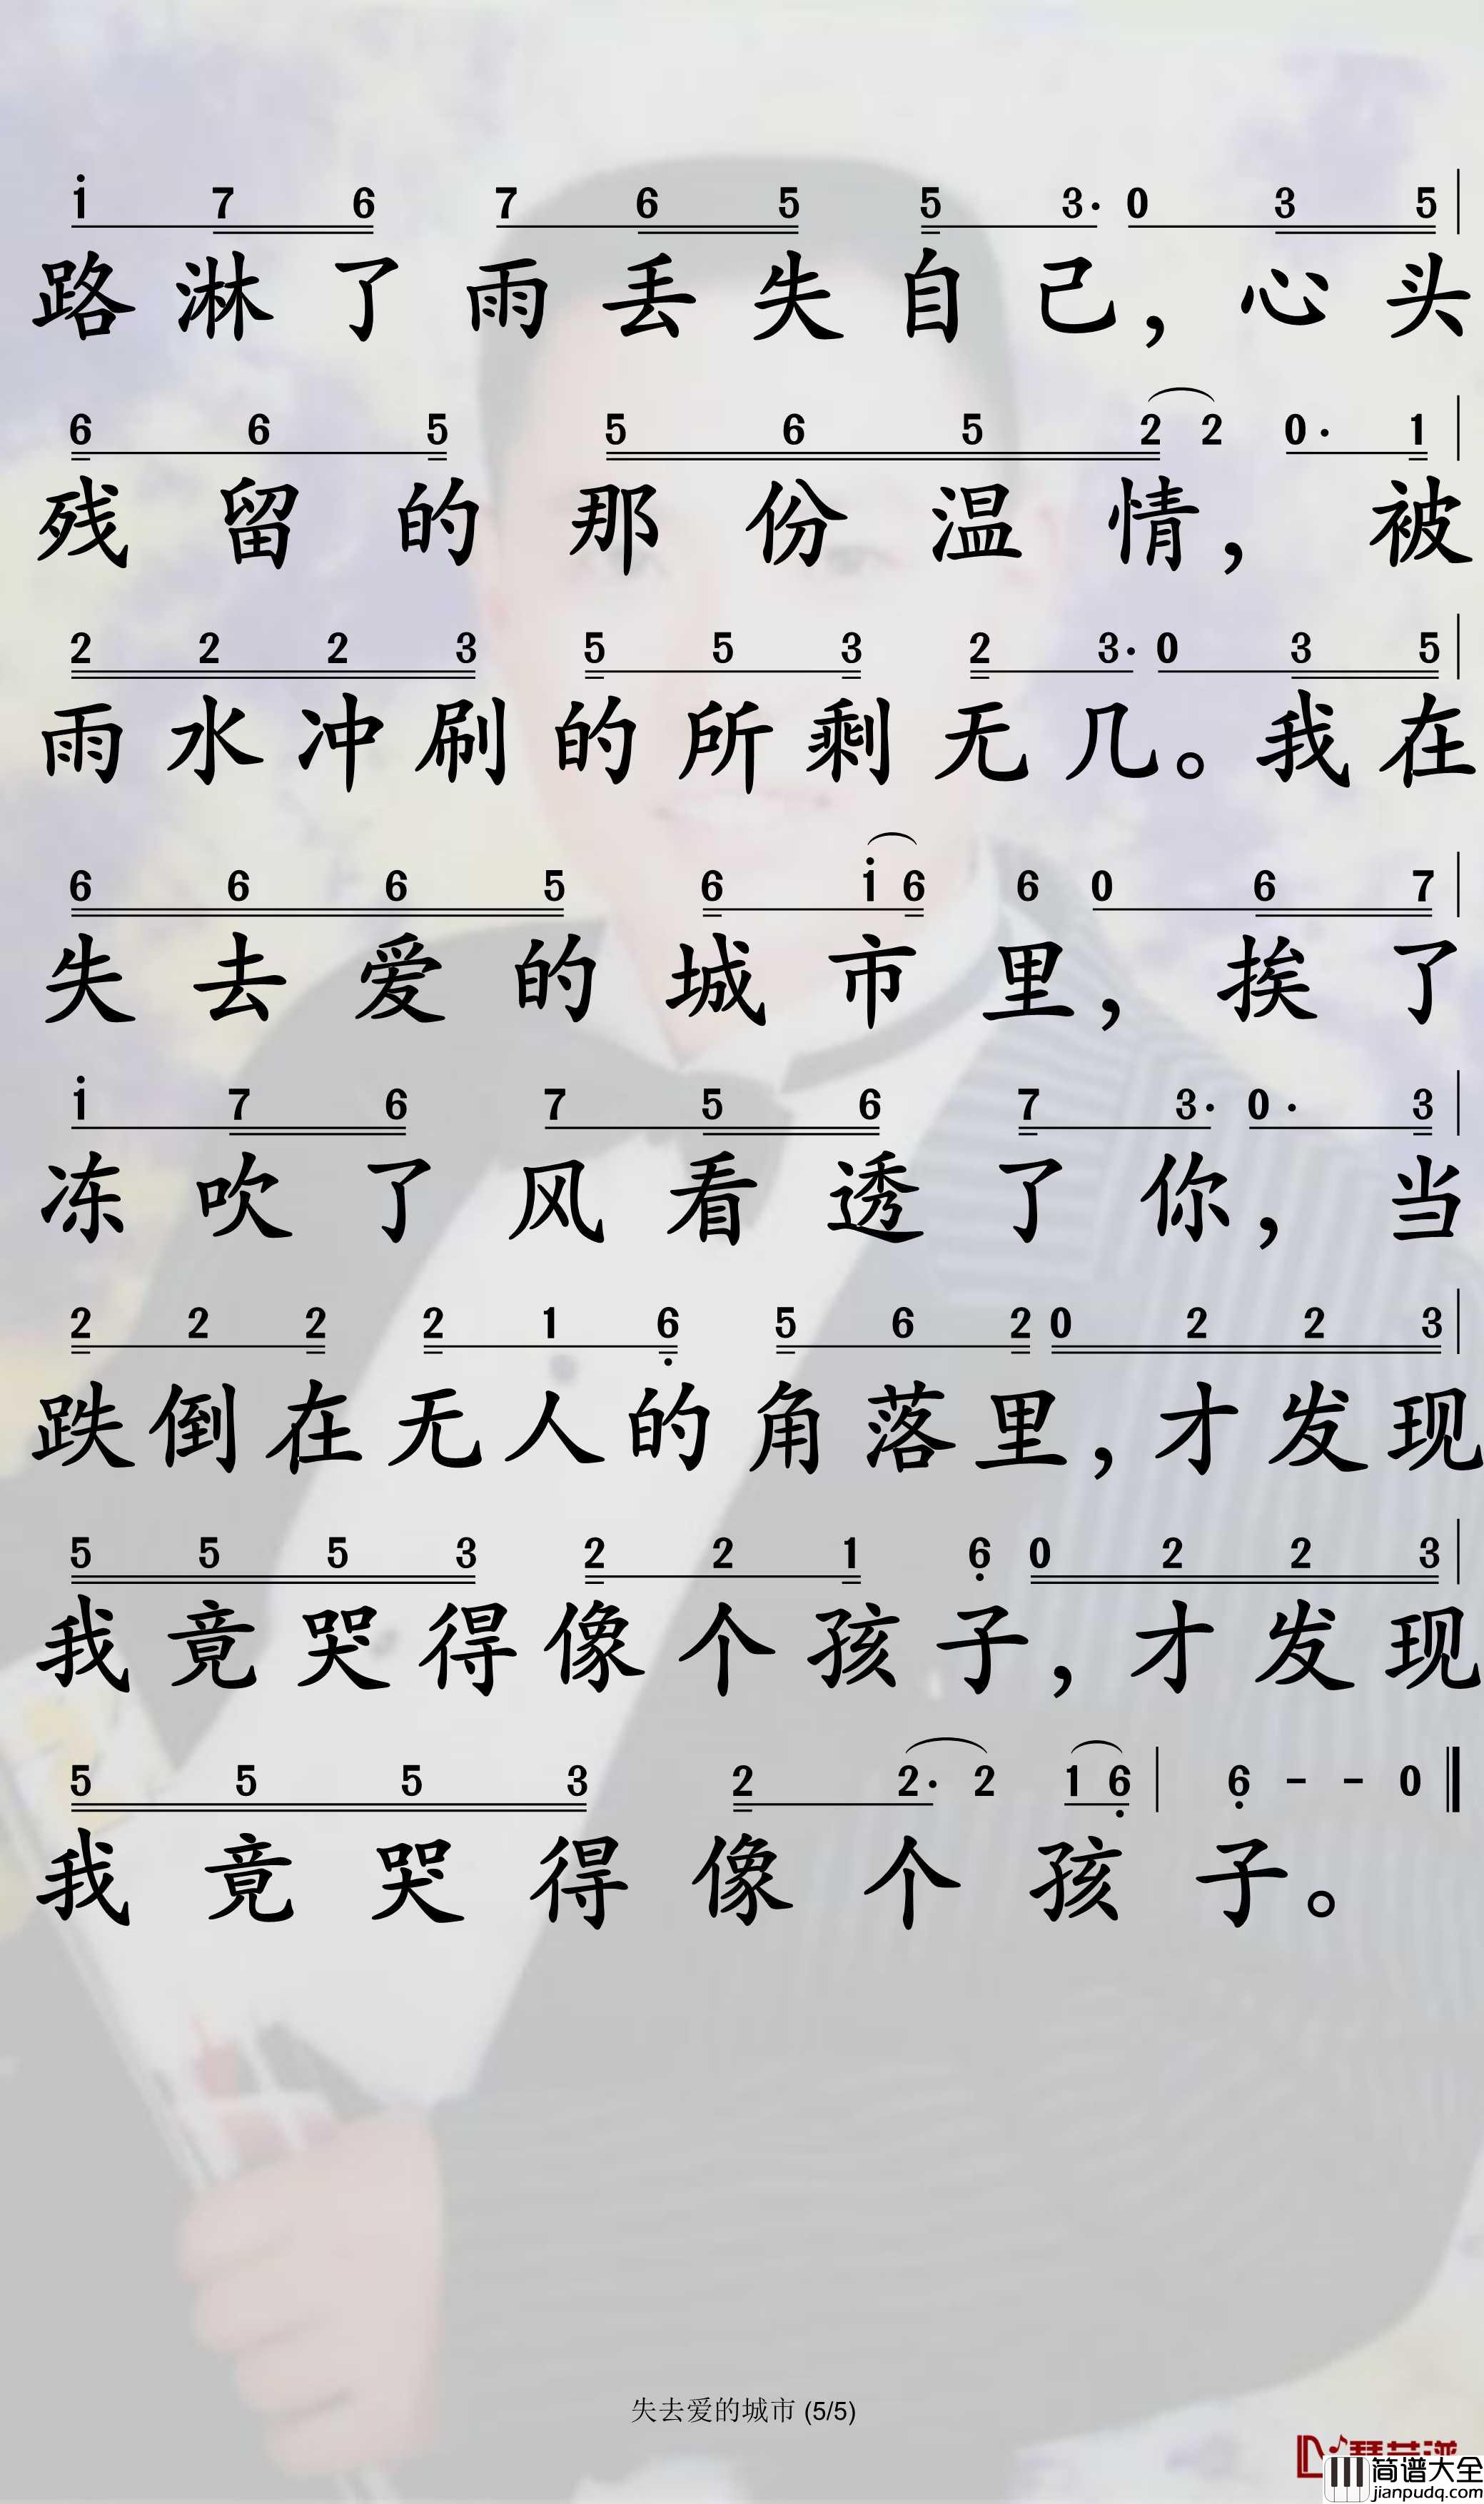 i 7 6 7 6 5 5 3· 0 3 5
路淋了雨丢失自己，心头
6 6 5 5 6 5 2 2 0· 1
残留的那份温情，被
2 2 2 3 5 5 3 2 3· 0 3 5
雨水冲刷的所剩无几。我在
6 6 6 5 6 i 6 6 0 6 7
失去爱的城市里，挨了
i 7 6 7 5 6 7 3· 0· 3
冻吹了风看透了你，当
2 2 2 2 1 6 5 6 2 0 2 2 3
跌倒在无人的角落里，才发现
5 5 5 3 2 2 1 6 0 2 2 3
我竟哭得像个孩子，才发现
5 5 5 3 2 2· 2 1 6 6 - - 0
我竟哭得像个孩子。
失去爱的城市 (5/5)
简谱大全
jianpudq.com